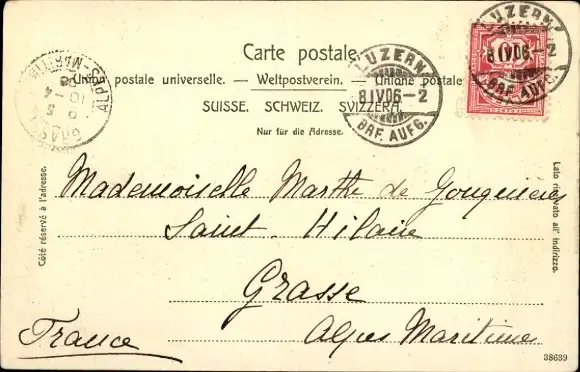 Carte postale.
Union postale universelle. — Weltpostverein. — Unione postale
SUISSE. SCHWEIZ. SVIZZERA.
Nur für die Adresse.
LUZERN
8IV06-2
BRF. AUFG.
LUZERN
8IV06-2
BRF. AUFG.
10
GRASSE
ALPES-MARITIMES
Côté réservé à l'adresse.
Lato riservato all' indirizzo.
Mademoiselle Marthe de
Saint-Hilaire
Grasse
France
Alpes Maritimes
38639